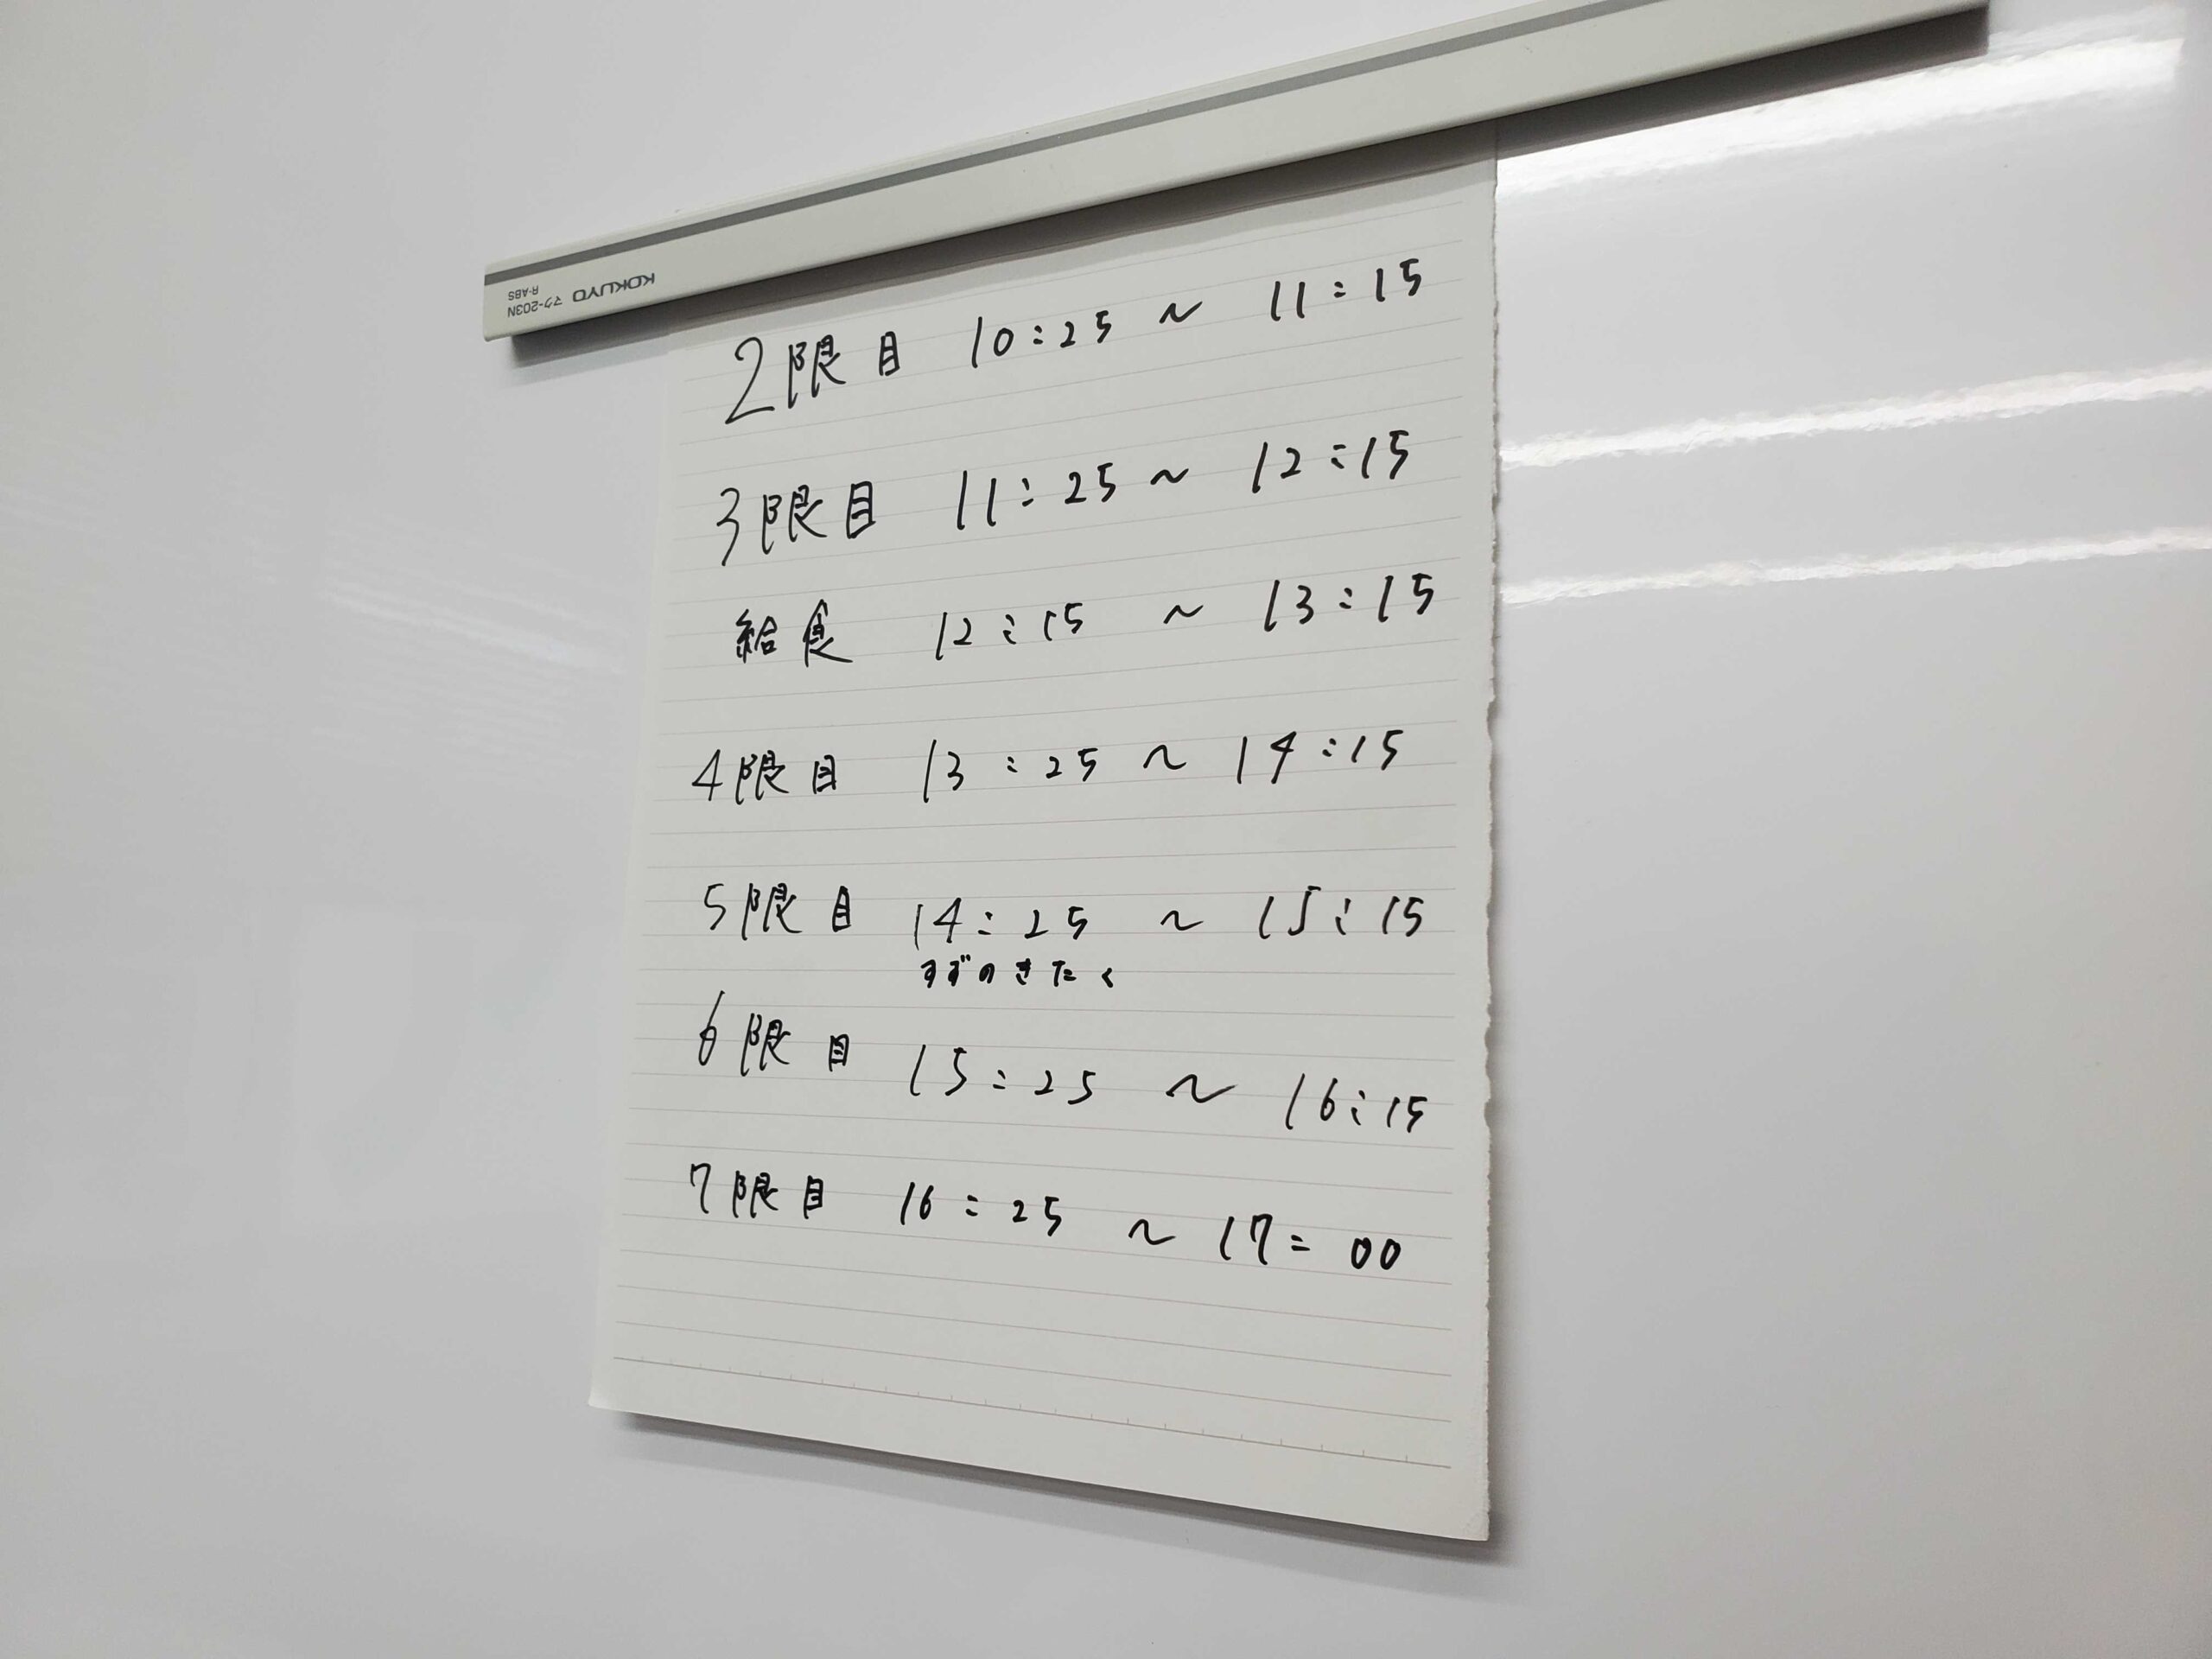 KOKUYO マク-203N
R-ABS
2限目 10:25 ~ 11:15
3限目 11:25 ~ 12:15
給食 12:15 ~ 13:15
4限目 13:25 ~ 14:15
5限目 14:25 ~ 15:15
すずのきたく
6限目 15:25 ~ 16:15
7限目 16:25 ~ 17:00